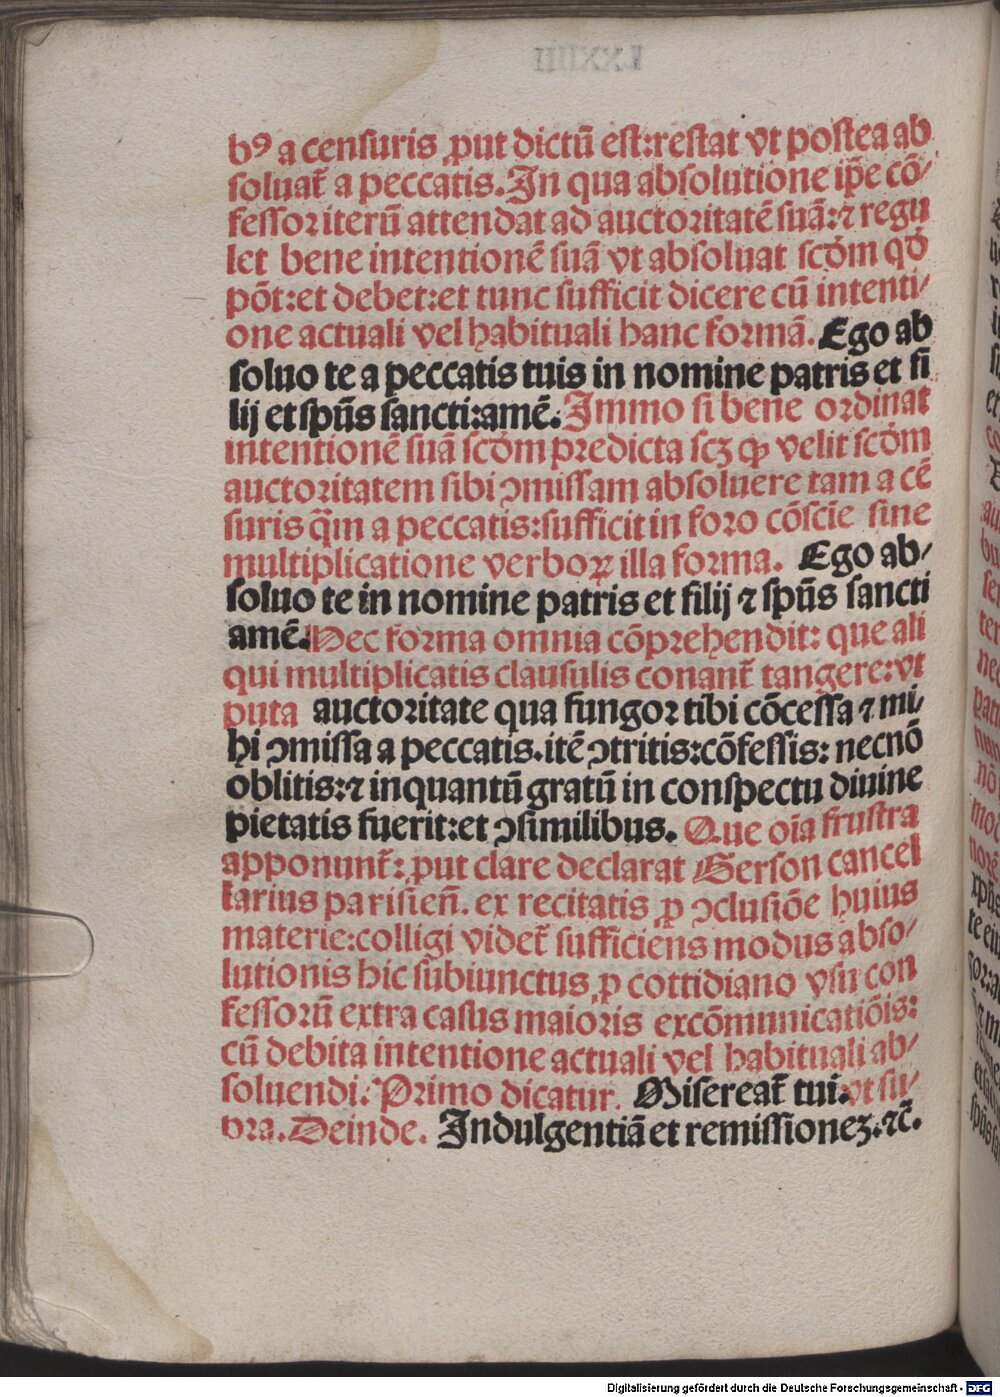 bꝰ a censuris ꝓut dictū est:restat vt postea ab
soluat᷑ a peccatis. In qua absolutione ip̄e cō/
fessor iterū attendat ad auctoritatē suā:⁊ regu
let bene intentionē suā vt absoluat scd̄m qd̄
pōt:et debet:et tunc sufficit dicere cū intenti/
one actuali vel habituali hanc formā. Ego ab
soluo te a peccatis tuis in nomine patris et fi
lij et spūs sancti:amē. Immo si bene ordinat
intentionē suā scd̄m predicta scꝫ ꝙ velit scd̄m
auctoritatem sibi ꝯmissam absoluere tam a cē
suris q̄m a peccatis:sufficit in foro cōscīe sine
multiplicatione verboꝝ illa forma. Ego ab/
soluo te in nomine patris et filij ⁊ spūs sancti
amē. Hec forma omnia cōprehendit: que ali
qui multiplicatis clausulis conant᷑ tangere:vt
puta auctoritate qua fungor tibi cōcessa ⁊ mi/
hi ꝯmissa a peccatis.itē ꝯtritis:cōfessis: necnō
oblitis:⁊ inquantū gratū in conspectu diuine
pietatis fuerit:et ꝯsimilibus. Que oīa frustra
apponunt᷑: ꝓut clare declarat Gerson cancel
larius parisieñ. ex recitatis ꝓ ꝯclusiōe huius
materie:colligi videt᷑ sufficiens modus abso/
lutionis hic subiunctus ꝓ cottidiano vsu con
fessorū extra casus maioris excōmunicatiōis:
cū debita intentione actuali vel habituali ab/
soluendi. Primo dicatur. Misereat᷑ tui. vt su/
pra. Deinde. Indulgentiā et remissionez.⁊c̄.
Digitalisierung gefördert durch die Deutsche Forschungsgemeinschaft - DFG